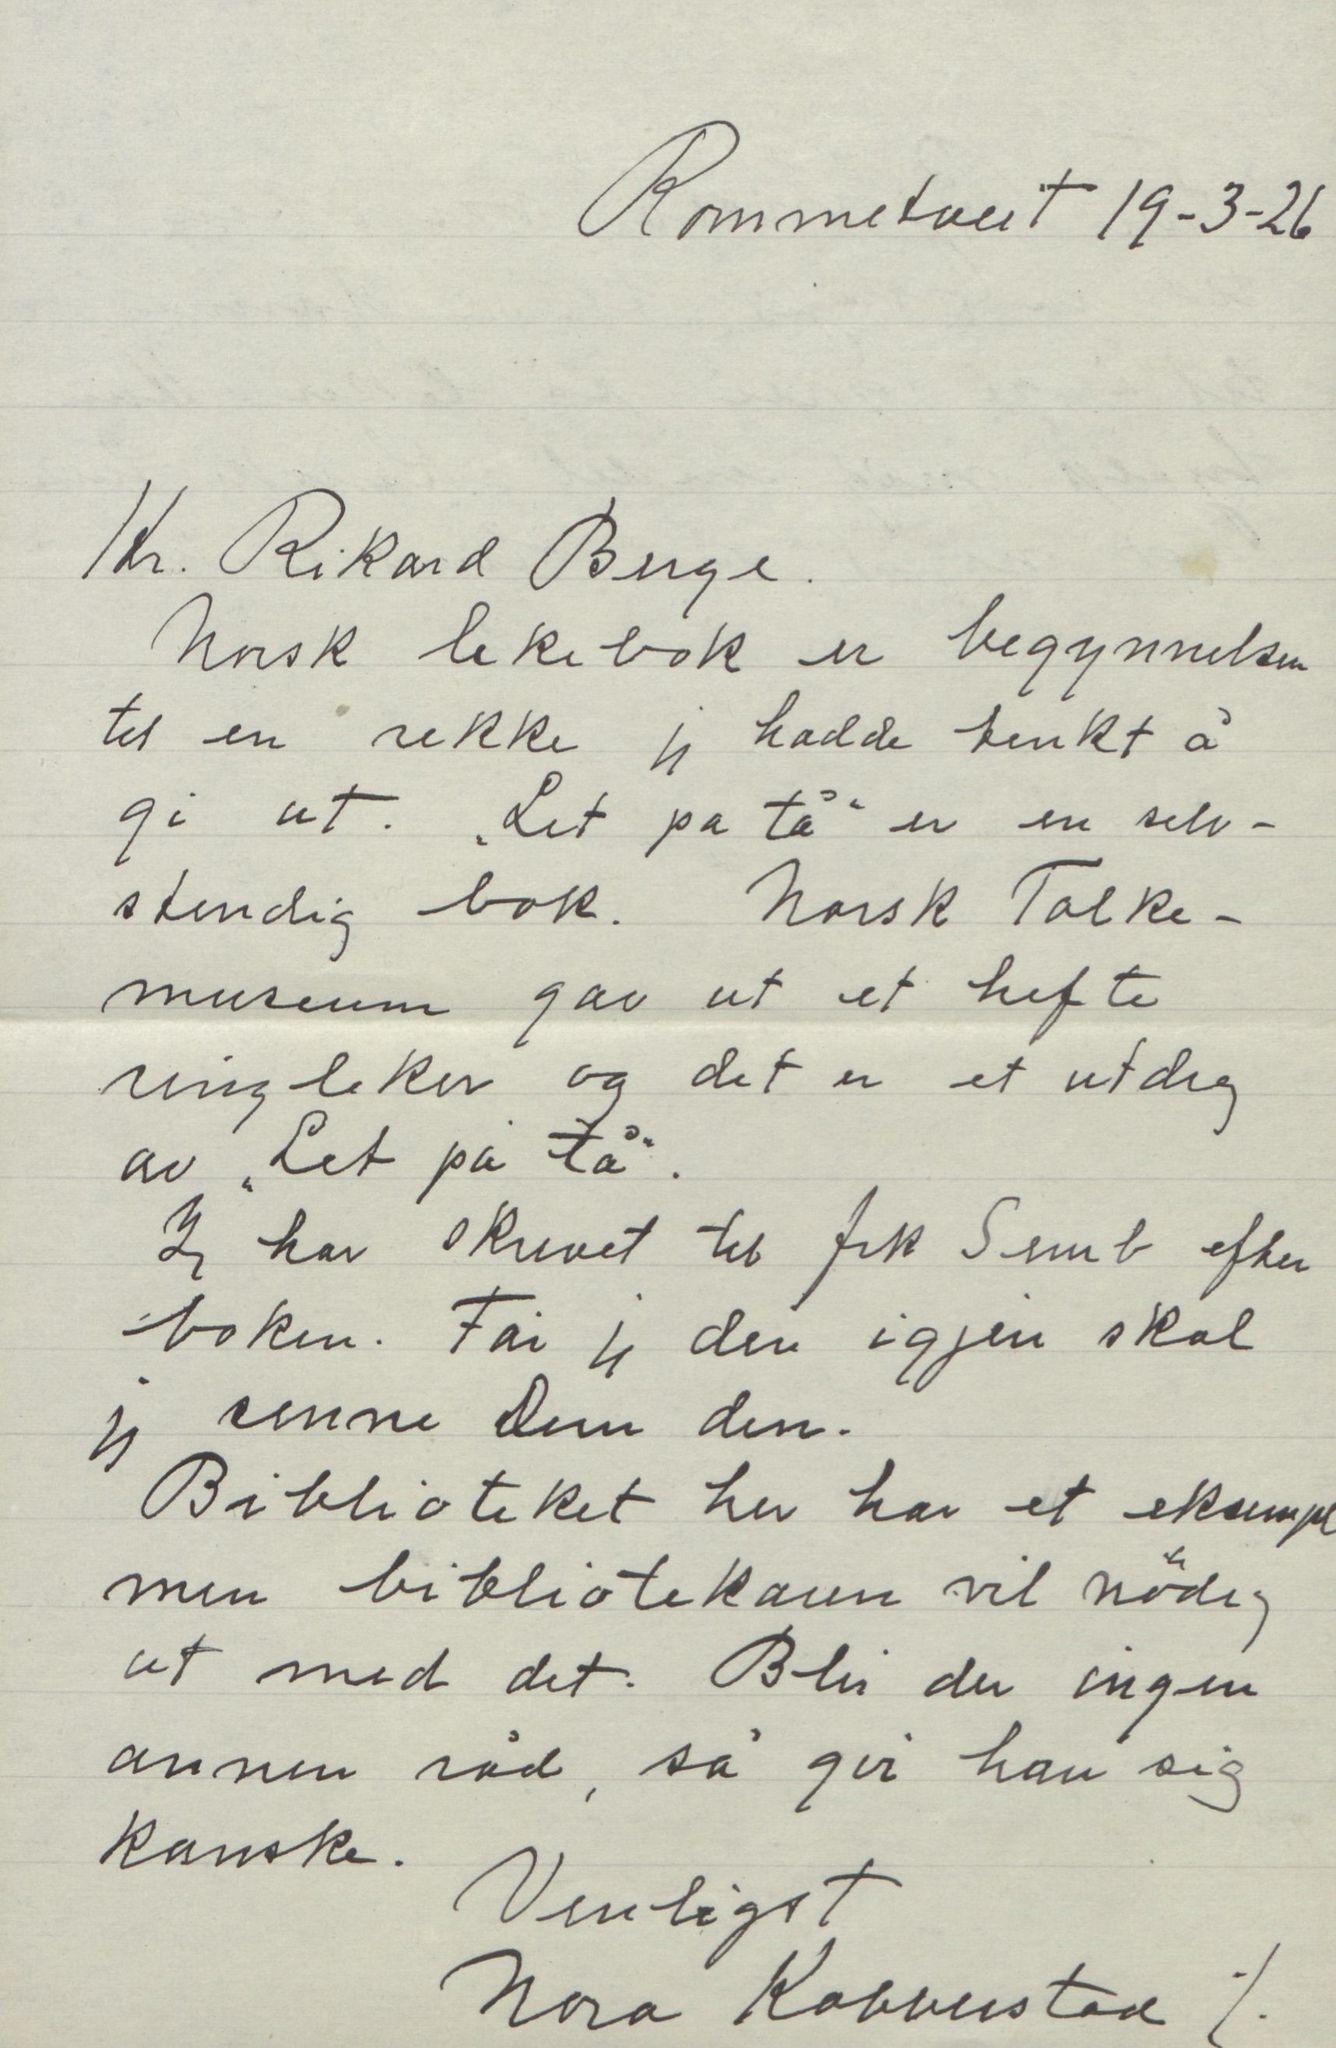 Rommetveit 19-3-26
Hr. Rikard Berge.
Norsk lekebok er begynnelsen
til en rekke jeg hadde tenkt å
gi ut. „Let pa tå“ er en selv-
stendig bok. Norsk Folke-
museum gav ut et hefte
ringleker og det er et utdrag
av „Let på tå“.
Jeg har skrevet til frk Semb efter
boken. Får jeg den igjen skal
jeg senne Dem den.
Biblioteket her har et eksempl
men bibliotekaren vil nödig
ut med det. Blir der ingen
annen råd, så gir han sig
kanske.
Venligst
Nora Kobberstad ./.